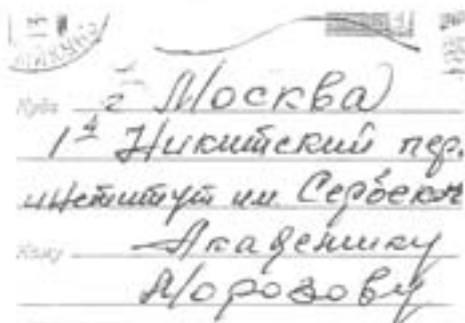 Куда г Москва
1й Никитский пер.
институт им Сербск
Кому Академику
Морозову